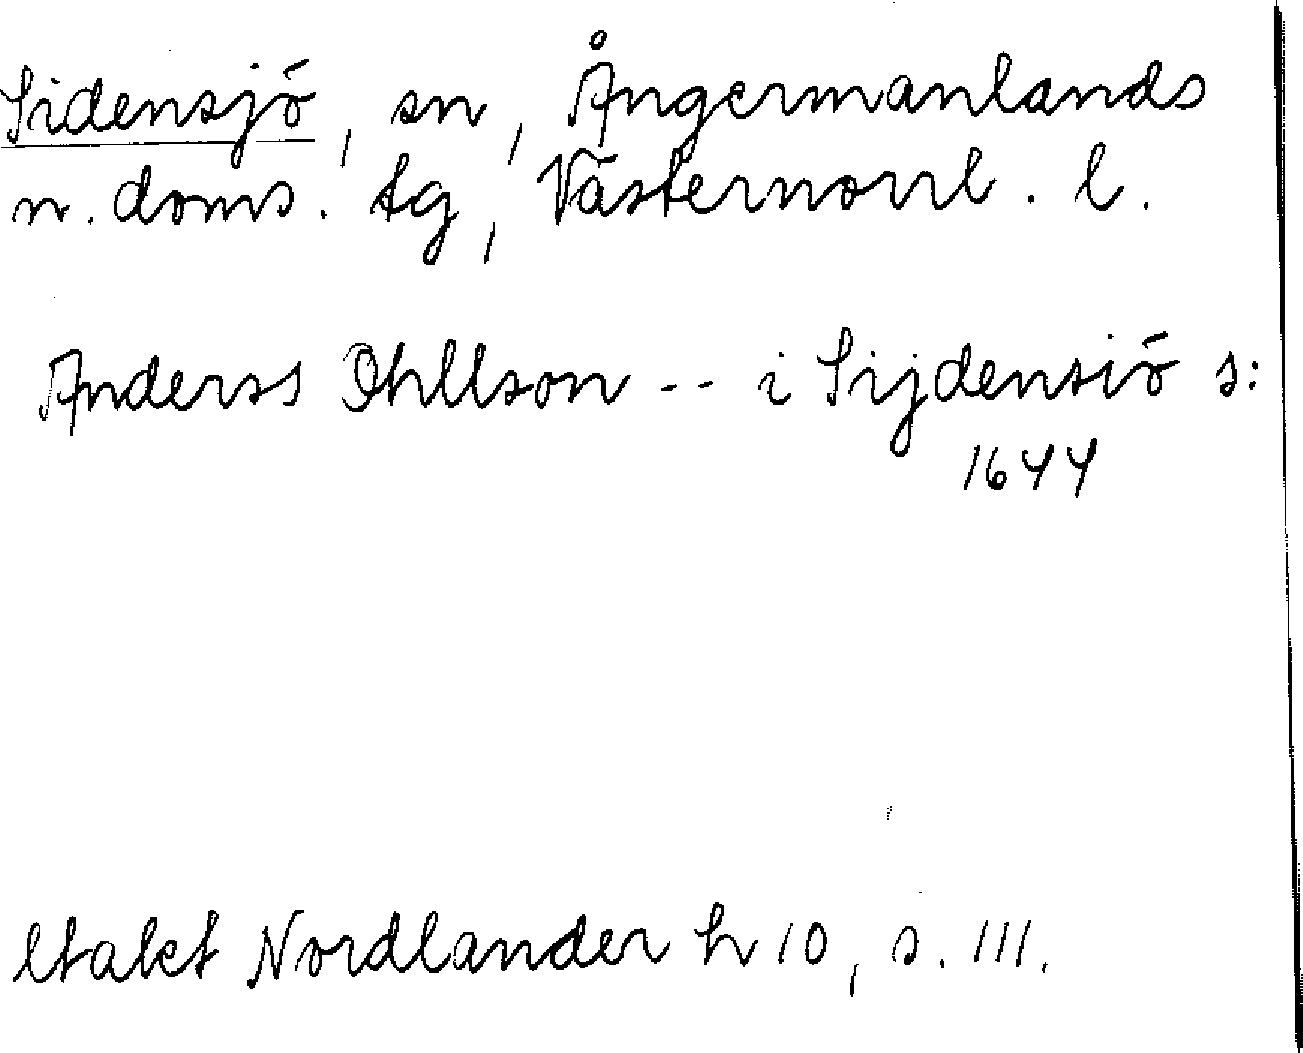 Sidensjö, sn, Ångermanlands
n. doms. tg, Västernorrl. l.
Anderss Ohllson -- i Sijdensiö s:
1644
Nordlander h 10, s. 111.